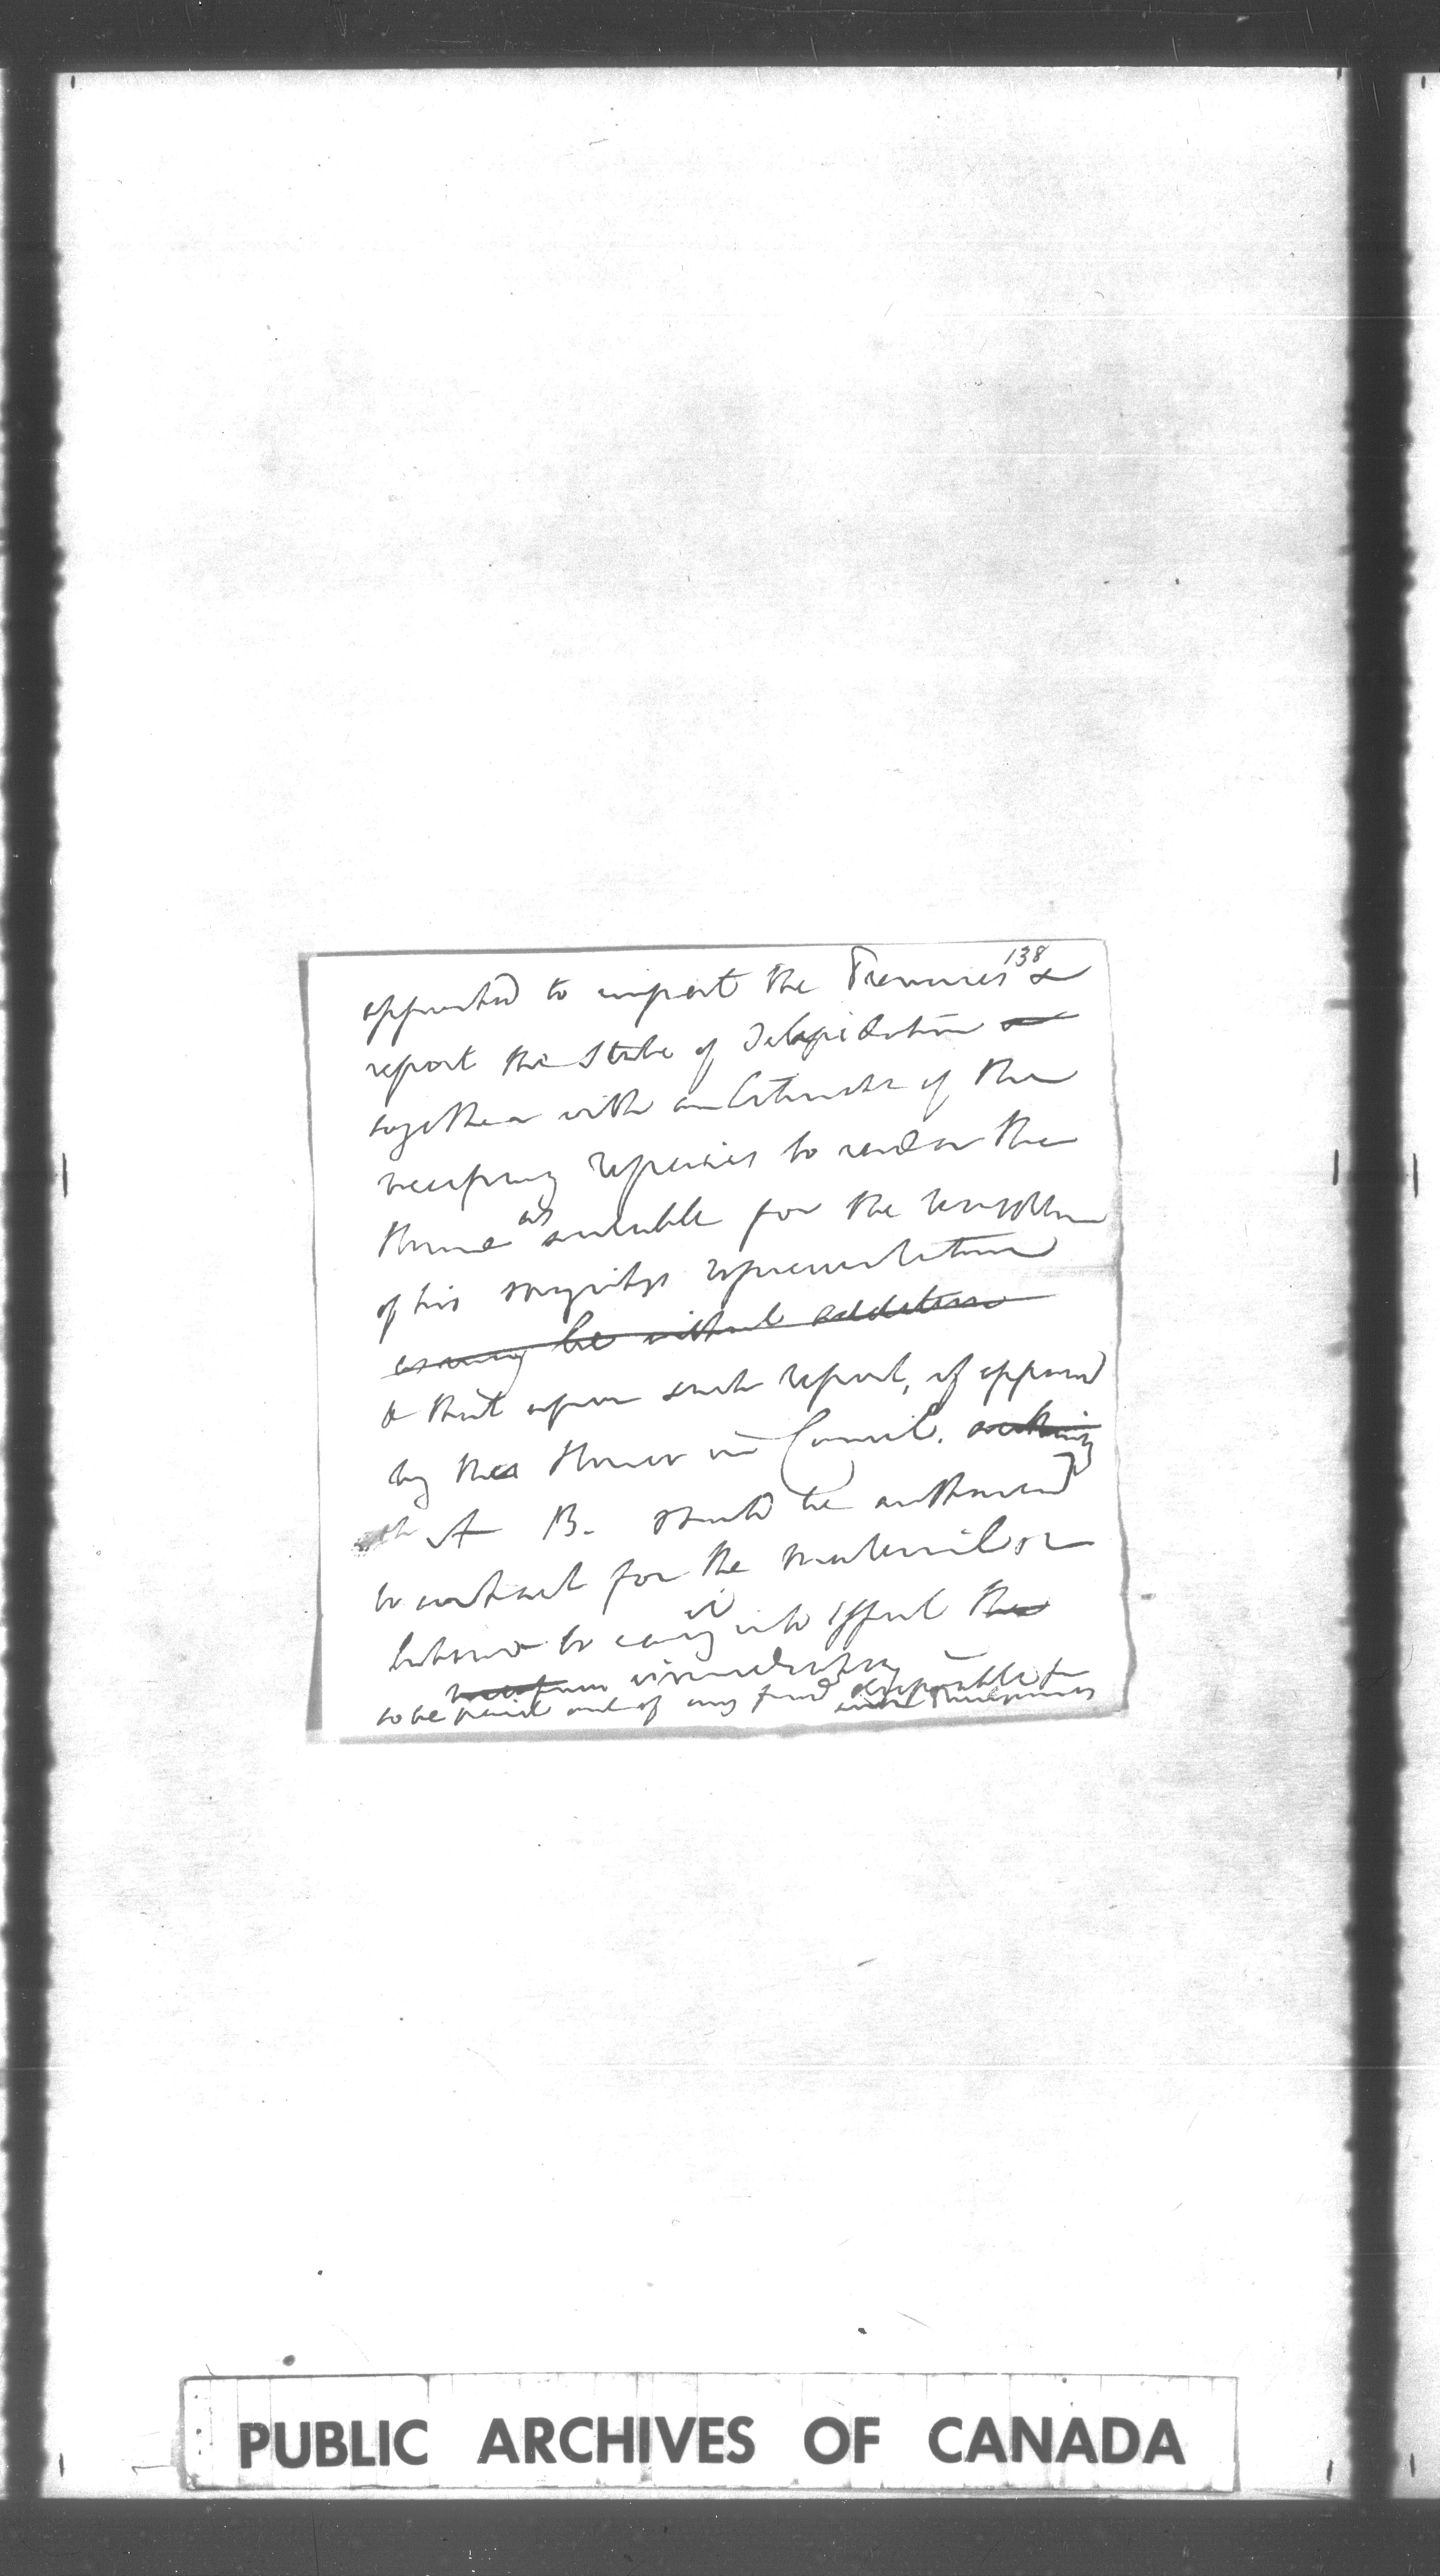 138
appointed to inspect the Premises &
report the State of Delapidation
together with an Estimate of the
necessary repairs to render the
House as suitable for the reception
of his majestys representative
as may be without addition
& that upon such report, if approved
by the Honor in Council.
A B. should be authorized
to contract for the material or
labour to carry it into effect the
immediately
to be paid out of any fund disposable for
such purposes
PUBLIC ARCHIVES OF CANADA